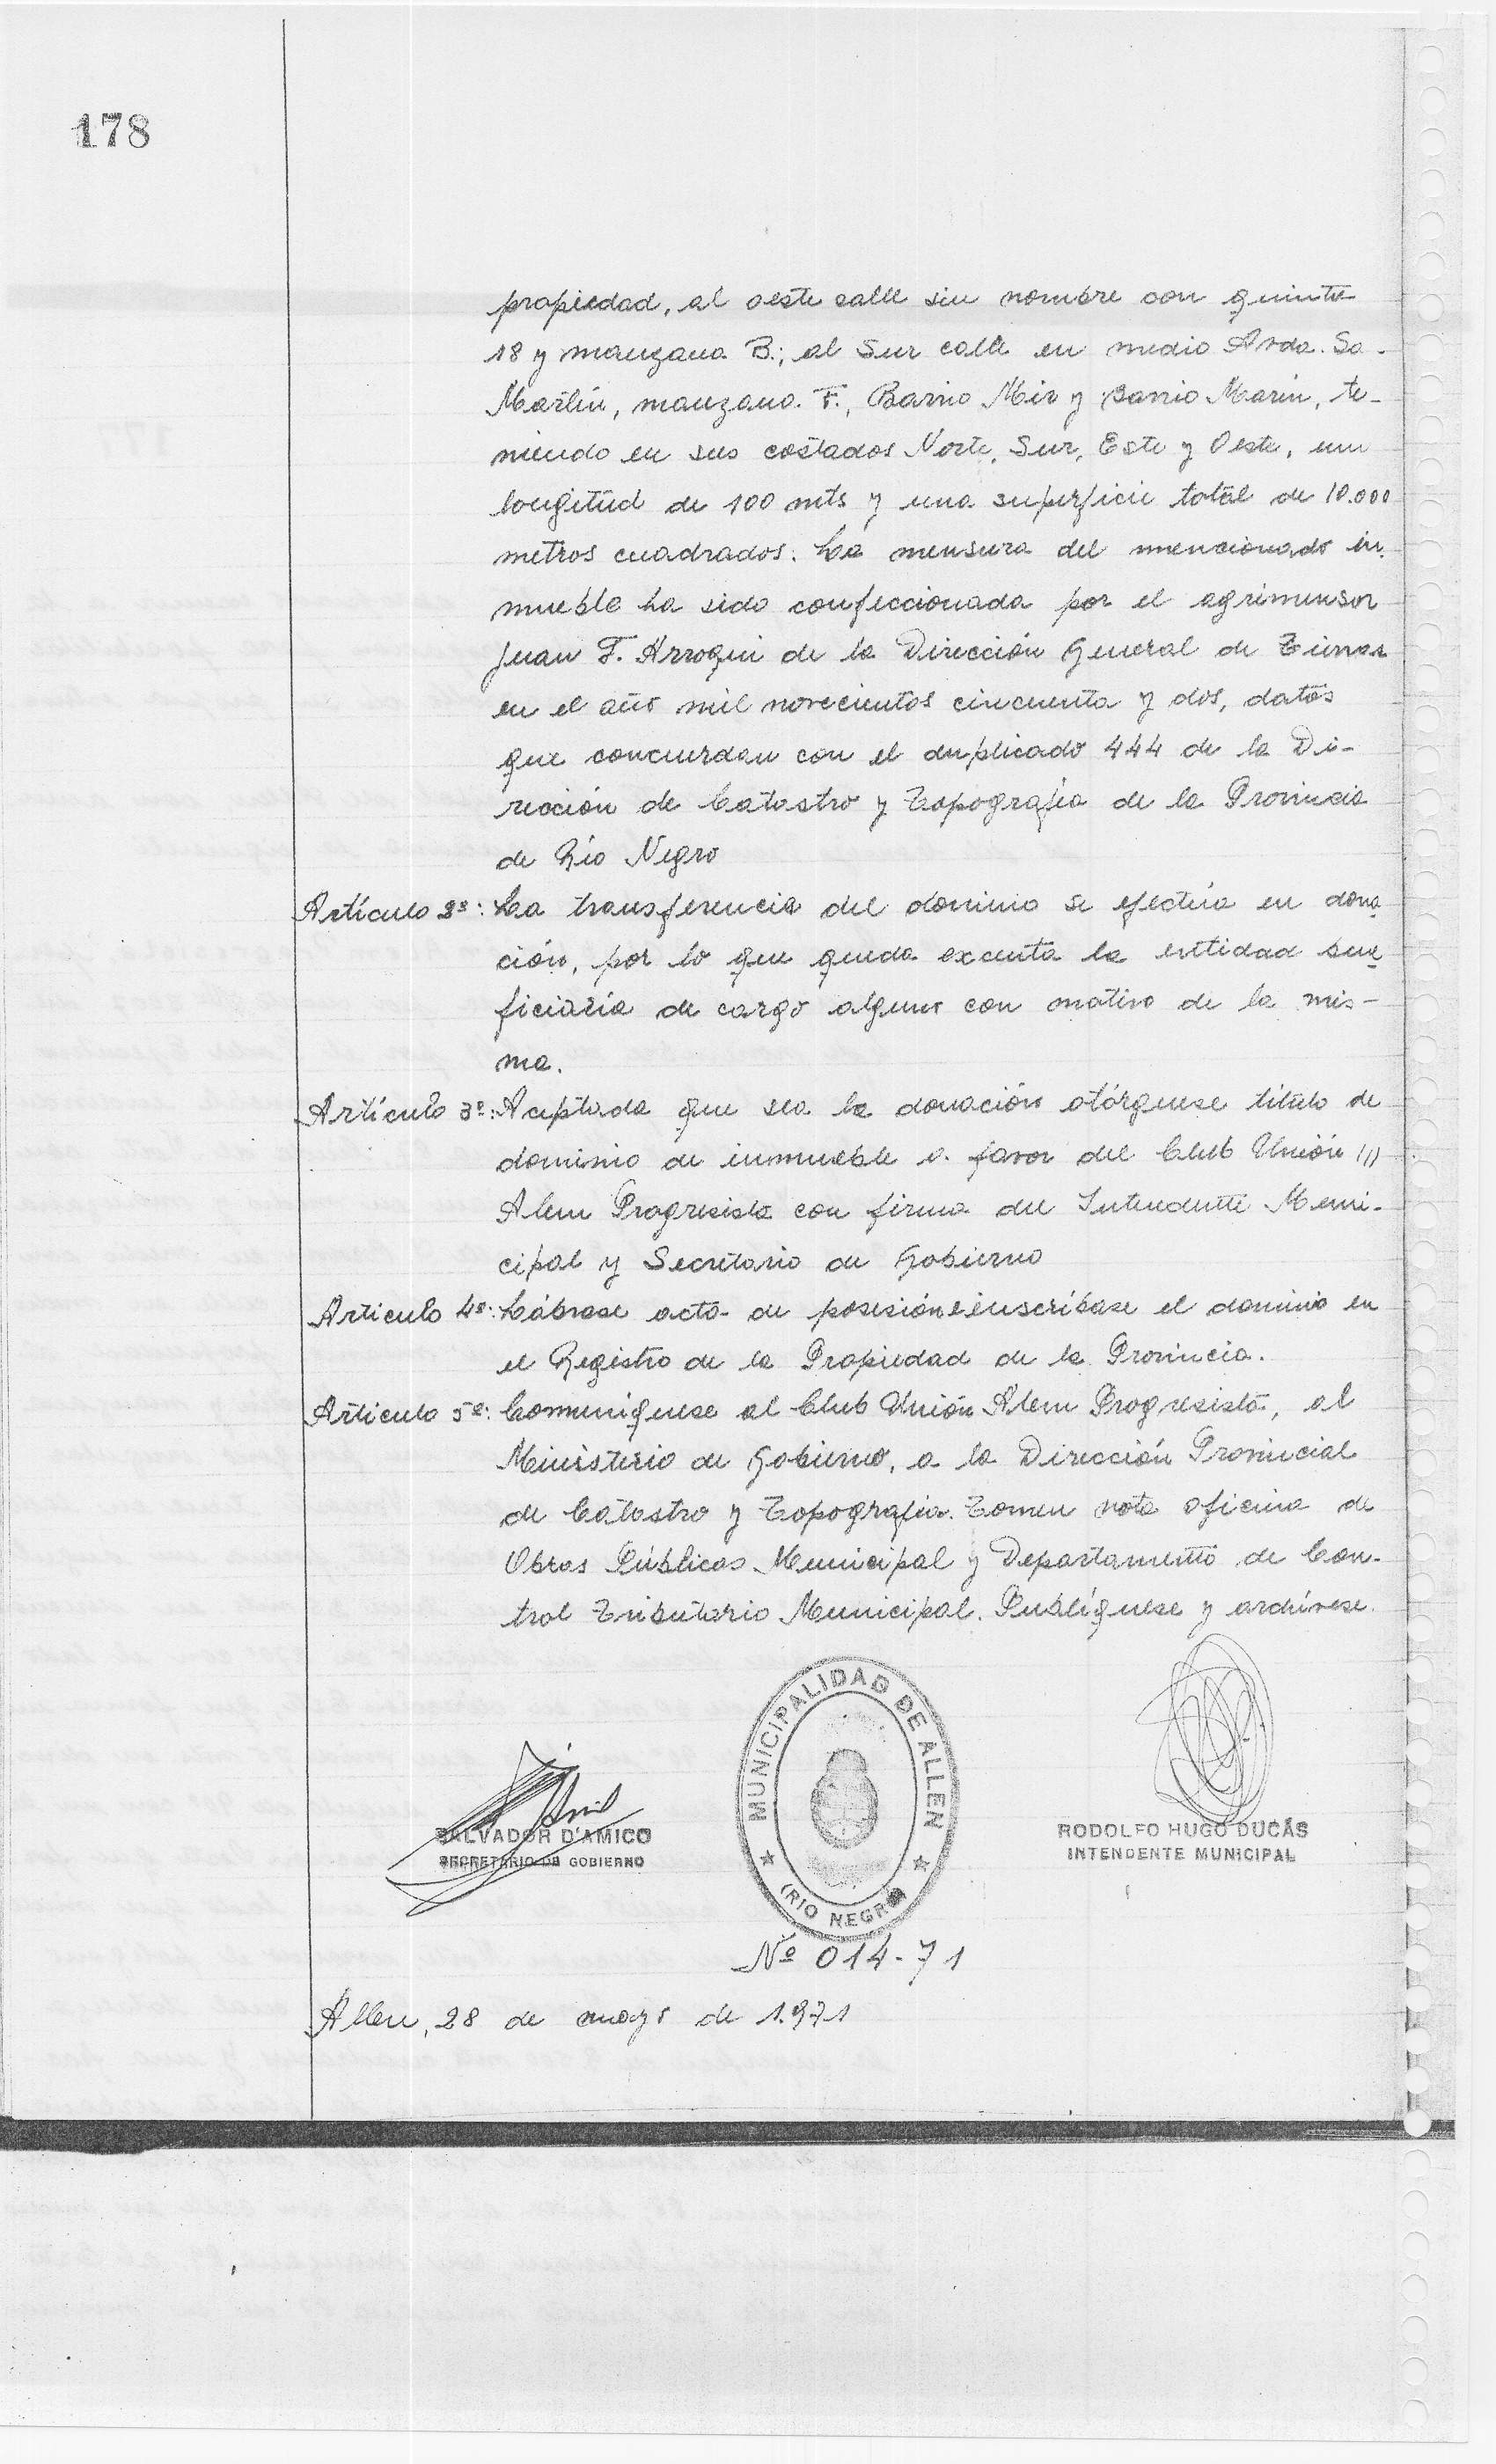 178
propiedad, al oeste calle sin nombre con quinta
18 y manzana B.; al Sur calle en medio Avda. Sa.
Martín, manzana. F., Barrio Mir y Barrio Marin, te-
niendo en sus costados Norte, Sur, Este y Oeste, una
longitud de 100 mts y una superficie total de 10.000
metros cuadrados. La mensura del mencionado in.
mueble ha sido confeccionada por el agrimensor
Juan F. Arroqui de la Dirección General de Tierras
en el año mil novecientos cincuenta y dos, datos
que concuerdan con el duplicado 444 de la Di-
rección de Catastro y Topografía de la Provincia
de Río Negro
Artículo 2º: La transferencia del dominio se efectúa en dona
ción, por lo que queda excenta la entidad bene
ficiaria de cargo alguno con motivo de la mis-
ma.
Artículo 3º: Aceptada que sea la donación otórguese título de
dominio de inmueble a favor del Club Unión ///
Alem Progresista con firma del Intendente Muni-
cipal y Secretario de Gobierno
Artículo 4º: Lábrase acta de posesión e inscríbase el dominio en
el Registro de la Propiedad de la Provincia.
Artículo 5º: Comuníquese al Club Unión Alem Progresista, al
Ministerio de Gobierno, a la Dirección Provincial
de Catastro y Topografía. Tomen nota oficina de
Obras Públicas Municipal y Departamento de Con-
trol Tributario Municipal. Publíquese y archívese.
MUNICIPALIDAD DE ALLEN
(RIO NEGRO)
SALVADOR D'AMICO
SECRETARIO DE GOBIERNO
RODOLFO HUGO DUCÁS
INTENDENTE MUNICIPAL
Nº 014-71
Allen, 28 de mayo de 1.971